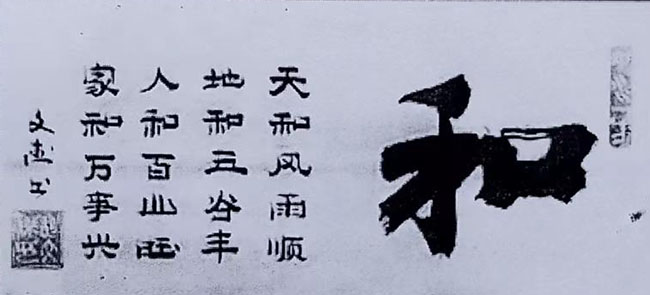 和
天和风雨顺
地和五谷丰
人和百业旺
家和万事兴
文 书